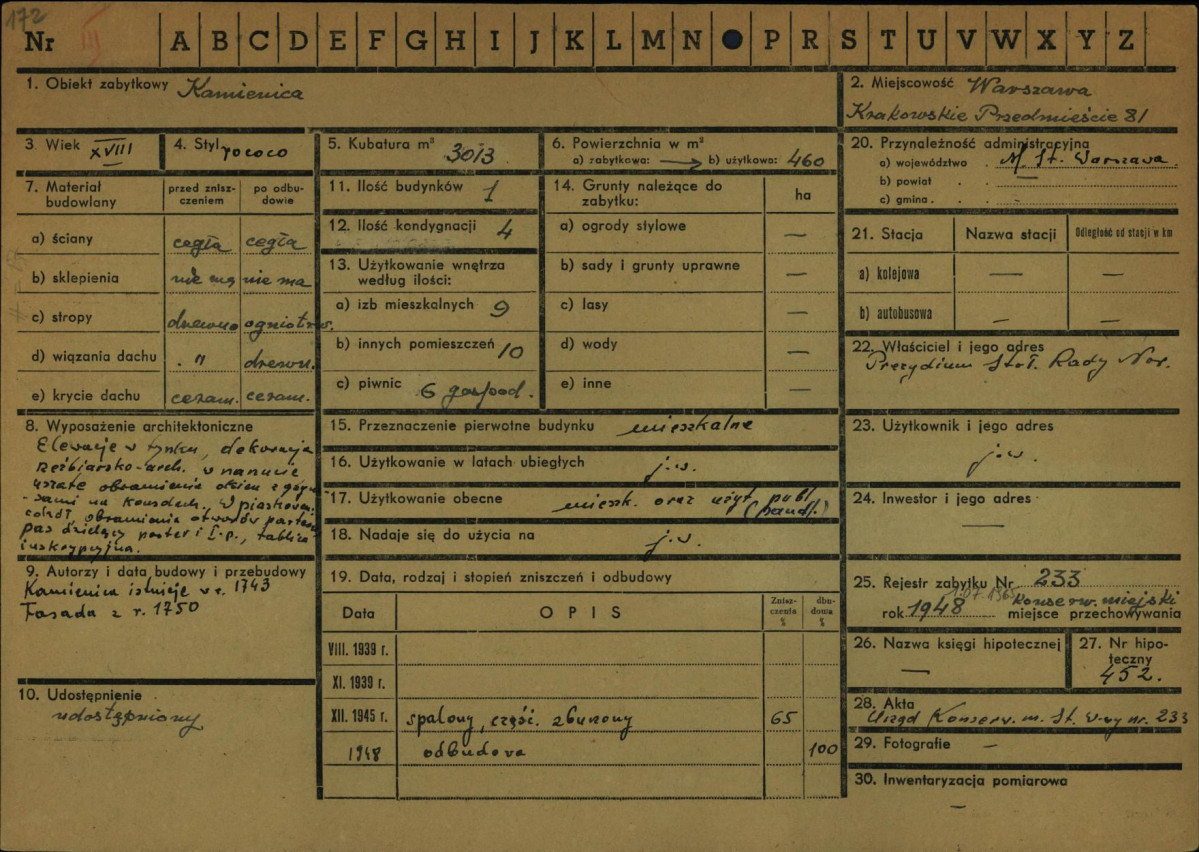 172
Nr III A B C D E F G H I J K L M N P R S T U V W X Y Z
1. Obiekt zabytkowy Kamienica
2. Miejscowość Warszawa
Krakowskie Przedmieście 81
3. Wiek XVIII
4. Styl rococo
5. Kubatura m³ 3013
6. Powierzchnia w m²
a) zabytkowa: → b) użytkowa: 460
7. Materiał budowlany
przed zniszczeniem
po odbudowie
a) ściany cegła cegła
b) sklepienia nie ma nie ma
c) stropy drewno ogniotrw.
d) wiązania dachu . " drewn.
e) krycie dachu ceram. ceram.
8. Wyposażenie architektoniczne
Elewacje w tynku, dekoracja
rzeźbiarsko-arch. w narzucie
uszate obramienia okien z gzym-
-sami na konsolach. W piaskowcu
cokół, obramienia otworów parteru
pas dzielący parter i I.p., tablica
inskrypcyjna.
9. Autorzy i data budowy i przebudowy
Kamienica istnieje w r. 1743
Fasada z r. 1750
10. Udostępnienie
udostępniony
11. Ilość budynków 1
12. Ilość kondygnacji 4
13. Użytkowanie wnętrza
według ilości:
a) izb mieszkalnych 9
b) innych pomieszczeń 10
c) piwnic 6 gospod.
14. Grunty należące do
zabytku:
ha
a) ogrody stylowe —
b) sady i grunty uprawne —
c) lasy —
d) wody —
e) inne —
15. Przeznaczenie pierwotne budynku mieszkalne
16. Użytkowanie w latach ubiegłych j.w.
17. Użytkowanie obecne mieszk. oraz użyt. publ.
(handl.)
18. Nadaje się do użycia na j.w.
19. Data, rodzaj i stopień zniszczeń i odbudowy
Data OPIS Zniszczenia % dbudowa %
VIII. 1939 r.
XI. 1939 r.
XII. 1945 r. spalony, część. zburzony 65
1948 odbudowa 100
20. Przynależność administracyjna
a) województwo . M. St. Warszawa
b) powiat . . —
c) gmina . .
21. Stacja Nazwa stacji Odległość od stacji w km
a) kolejowa — —
b) autobusowa — —
22. Właściciel i jego adres
Prezydium Stoł. Rady Nar.
23. Użytkownik i jego adres
j.w.
24. Inwestor i jego adres
—
25. Rejestr zabytku Nr 233
1.07.1965 konserw. miejski
rok 1948 miejsce przechowywania
26. Nazwa księgi hipotecznej
—
27. Nr hipoteczny
452.
28. Akta
Urząd Konserw. m. St. W-wy nr. 233
29. Fotografie —
30. Inwentaryzacja pomiarowa
—